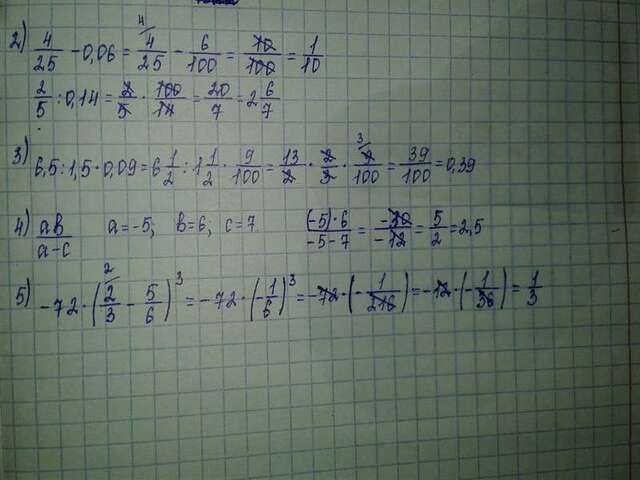 2) 4/25 - 0,06 = 4/25 - 6/100 = 10/100 = 1/10
2/5 : 0,14 = 2/5 · 100/14 = 20/7 = 2 6/7
3) 6,5 : 1,5 · 0,09 = 6 1/2 : 1 1/2 · 9/100 = 13/2 · 2/3 · 9/100 = 39/100 = 0,39
4) ab/a-c a = -5; b = 6; c = 7 (-5)·6/-5-7 = -30/-12 = 5/2 = 2,5
5) -72 · (2/3 - 5/6)³ = -72 · (-1/6)³ = -72 · (-1/216) = -12 · (-1/36) = 1/3